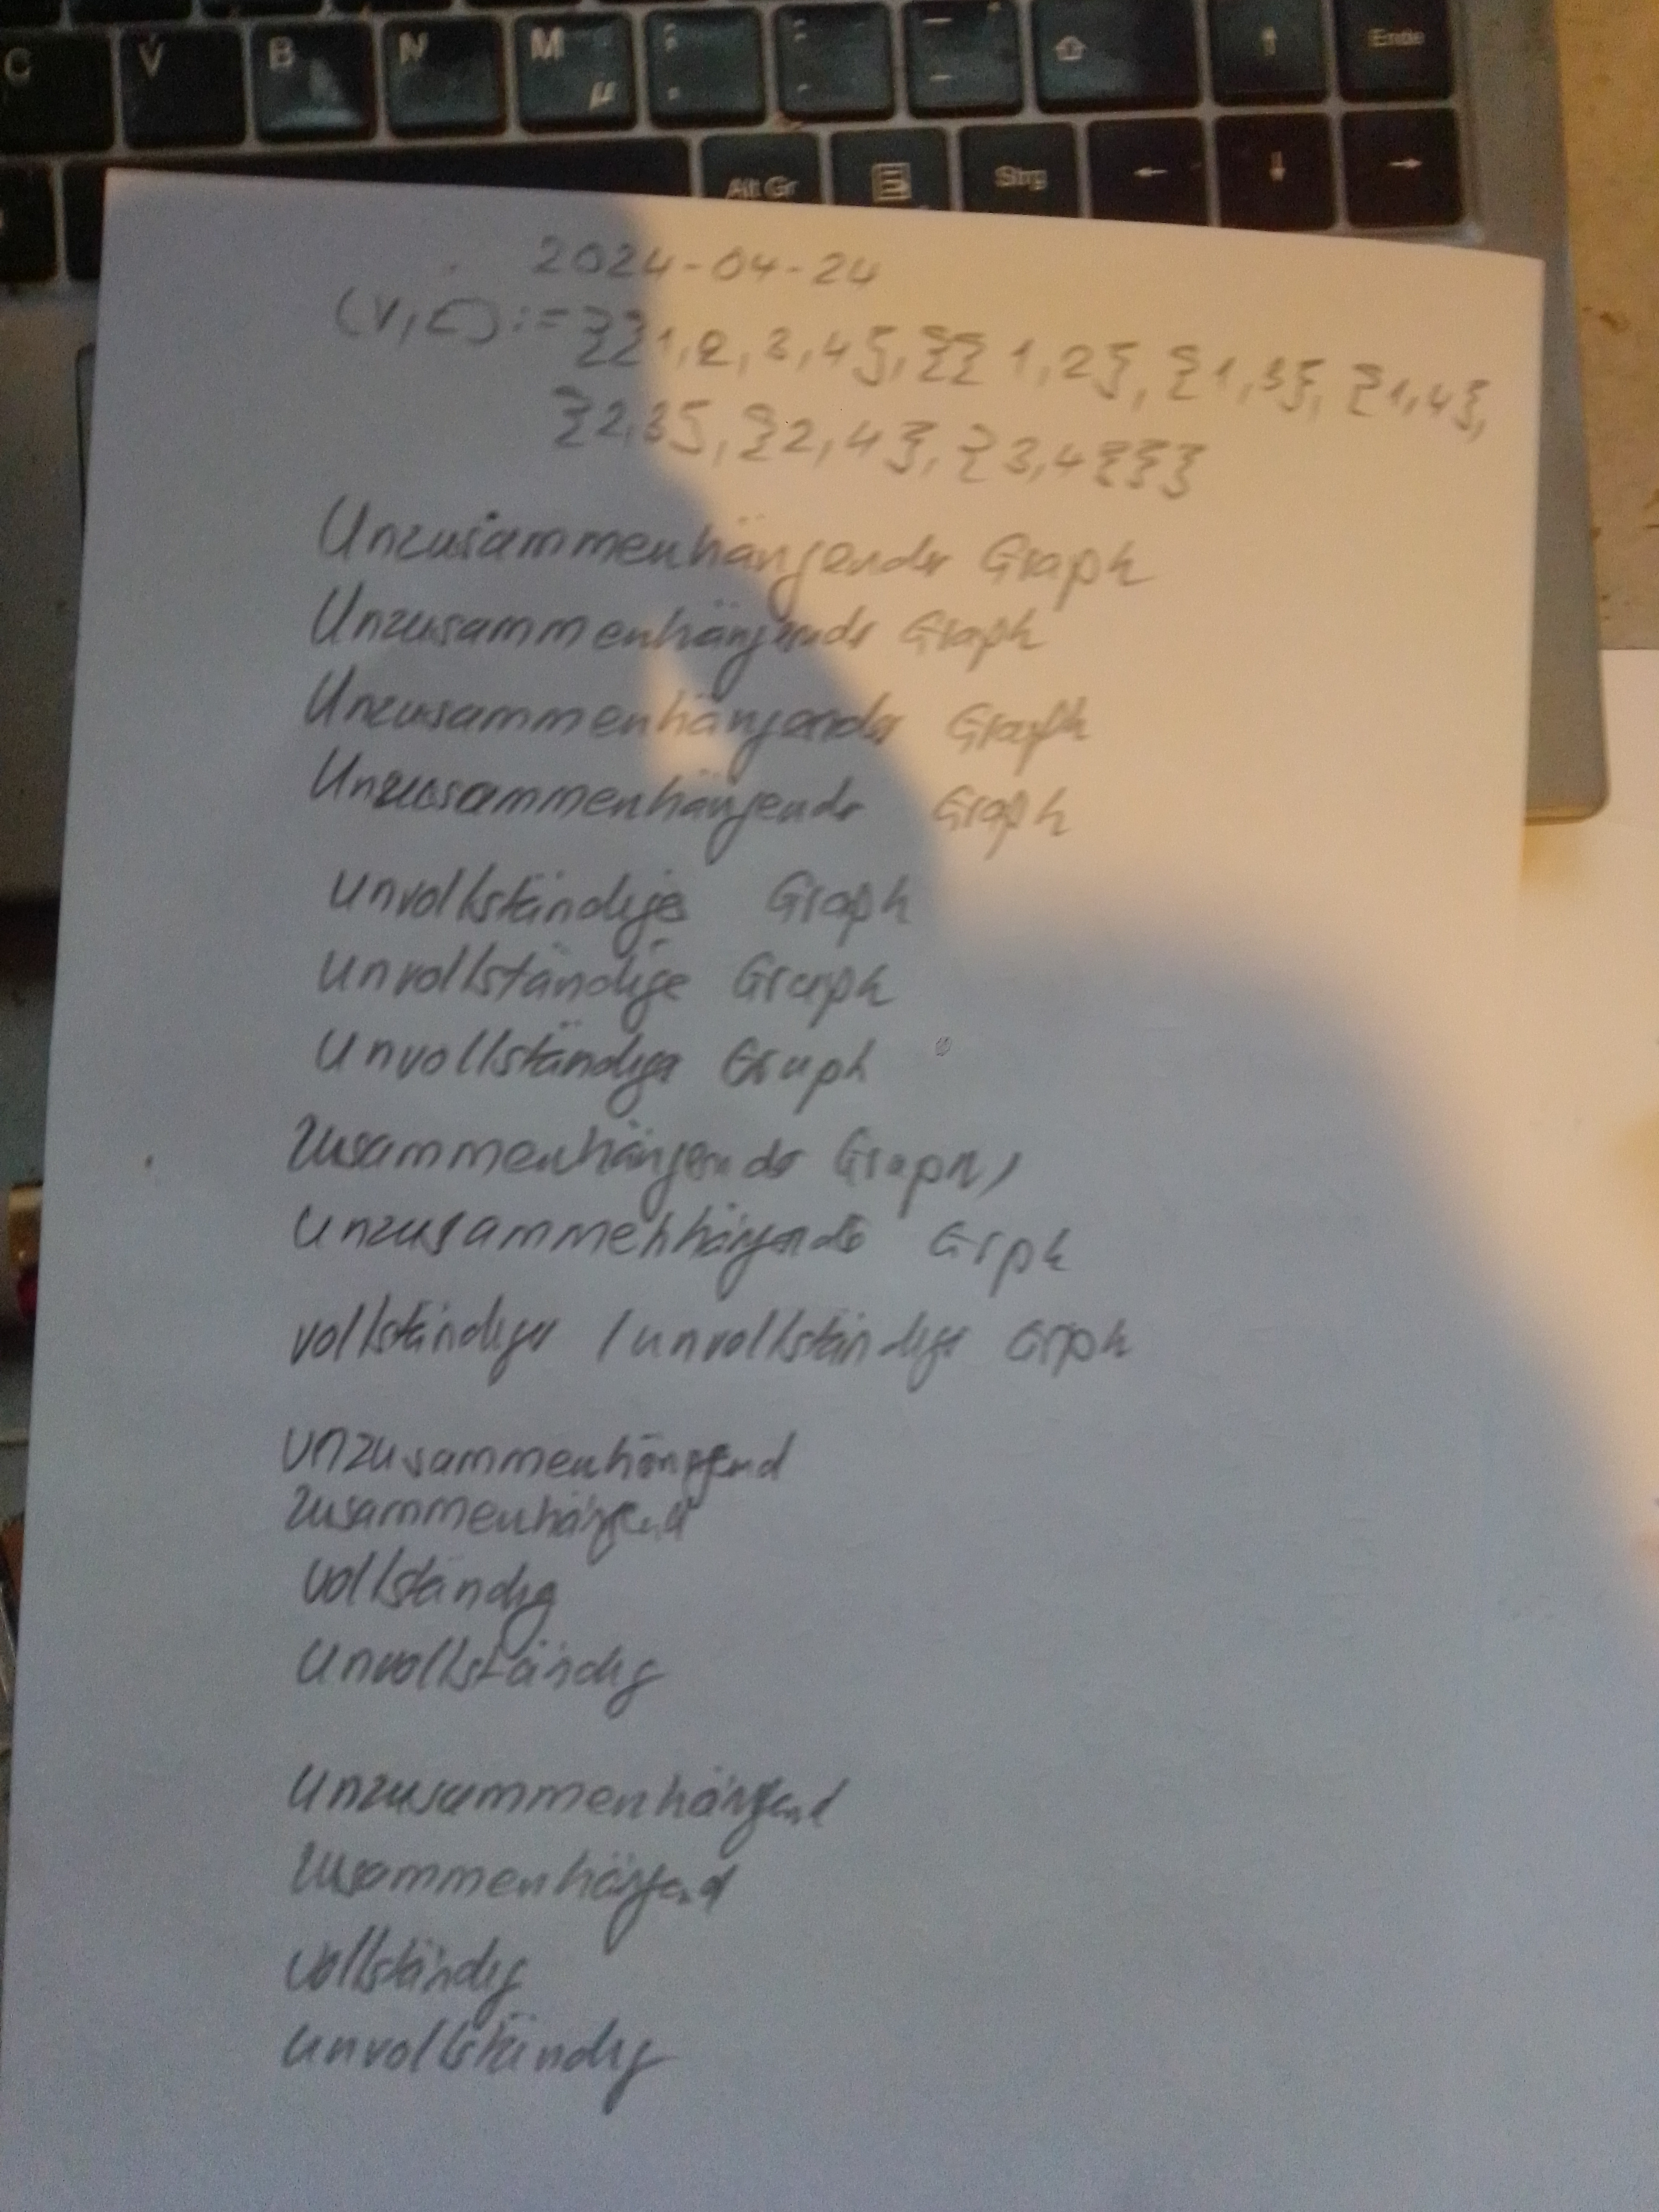 C V B N M µ ; , : . _ - ⇧ ↑ Ende
Alt Gr Strg ← ↓ →
2024-04-24
(V,E) := {{1,2,3,4},{{1,2},{1,3},{1,4},
{2,3},{2,4},{3,4}}}
Unzusammenhängender Graph
Unzusammenhängende Graph
Unzusammenhängender Graph
Unzusammenhängende Graph
Unvollständiges Graph
Unvollständige Graph
Unvollständiger Graph
Zusammenhängende Graph /
Unzusammenhängende Grph
vollständiger / unvollständiger Grph
unzusammenhängend
Zusammenhängend
vollständig
Unvollständig
Unzusammenhängend
Zusammenhängend
Vollständig
Unvollständig